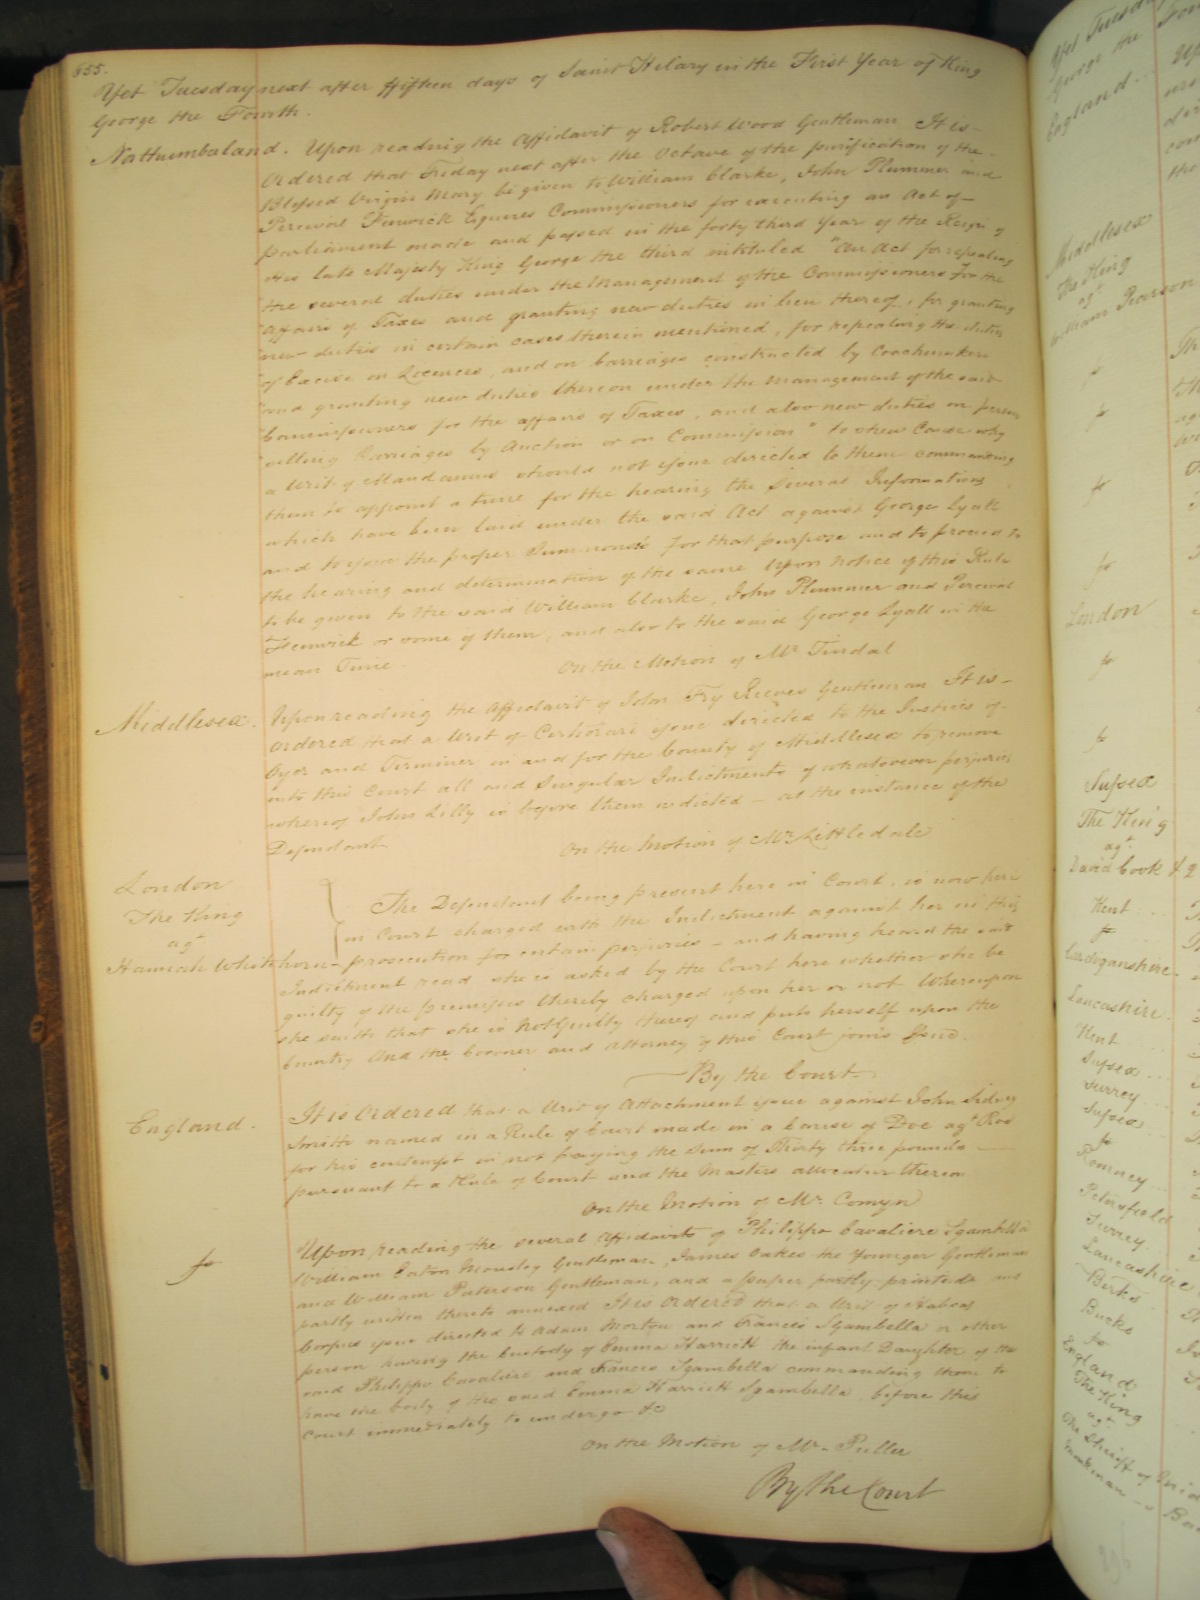 655.
Yet Tuesday next after fifteen days of Saint Hilary in the First Year of King
George the Fourth.
Northumberland. Upon reading the Affidavit of Robert Wood Gentleman It is
Ordered that Friday next after the Octave of the purification of the
Blessed Virgin Mary be given to William Clarke, John Plummer and
Percival Fenwick Esquires Commissioners for executing an Act of
parliament made and passed in the forty third Year of the Reign of
His late Majesty King George the third intituled "An Act for repealing
"the several duties under the Management of the Commissioners for the
"affairs of Taxes and granting new duties in lieu thereof, for granting
"new duties in certain cases therein mentioned, for repealing the duties
"of Excise on Licences, and on Carriages constructed by Coachmakers
"and granting new duties thereon under the Management of the said
"Commissioners for the affairs of Taxes, and also new duties on persons
"selling Carriages by Auction or on Commission" to shew Cause why
a Writ of Mandamus should not issue directed to them commanding
them to appoint a time for the hearing the several Informations
which have been laid under the said Act against George Lyall
and to issue the proper Summons's for that purpose and to proceed to
the hearing and determination of the same Upon notice of this Rule
to be given to the said William Clarke, John Plummer and Percival
Fenwick or some of them, and also to the said George Lyall in the
mean Time.
On the Motion of Mr. Tindal
Middlesex. Upon reading the Affidavit of John Fry Reeves Gentleman It is
Ordered that a Writ of Certiorari issue directed to the Justices of
Oyer and Terminer in and for the County of Middlesex to remove
into this Court all and Singular Indictments of whatsoever perjuries
whereof John Lilly is before them indicted - at the instance of the
Defendant
On the Motion of Mr. Littledale
London
The King
agt
Hannah Whitehorn
The Defendant being present here in Court, is now here
in Court charged with the Indictment against her in this
prosecution for certain perjuries - and having heard the said
Indictment read she is asked by the Court here whether she be
guilty of the premises thereby charged upon her or not Whereupon
she saith that she is Not Guilty thereof and puts herself upon the
Country And the Coroner and Attorney of this Court joins Issue.
By the Court
England. It is Ordered that a Writ of Attachment issue against John Sidney
Smith named in a Rule of Court made in a Cause of Doe agt Roe
for his contempt in not paying the Sum of Thirty three pounds
pursuant to a Rule of Court and the Masters allocatur thereon
On the Motion of Mr. Comyn
fo Upon reading the several Affidavits of Philippo Cavaliere Sgambella
William Eaton Mousley Gentleman, James Oakes the Younger Gentleman
and William Paterson Gentleman, and a paper partly printed and
partly written thereto annexed It is Ordered that a Writ of Habeas
Corpus issue directed to Adam Morton and Francis Sgambella or other
person having the Custody of Emma Harriett the infant Daughter of the
said Philippo Cavaliere and Francis Sgambella commanding them to
have the body of the said Emma Harriett Sgambella before this
Court immediately to undergo &c
On the Motion of Mr. Puller
By the Court
Yet Tuesday
George the
England
Middlesex
The King
agt
William Pearson
fo
fo
fo
fo
London
fo
fo
Sussex
The King
agt
David Cook &
Kent
fo
Cardiganshire
Lancashire.
Kent
Sussex
Surrey
Sussex
fo
Romney
Petersfield
Surrey
Lancashire
Berks
Bucks
fo
England
The King
agt
The Sheriff of